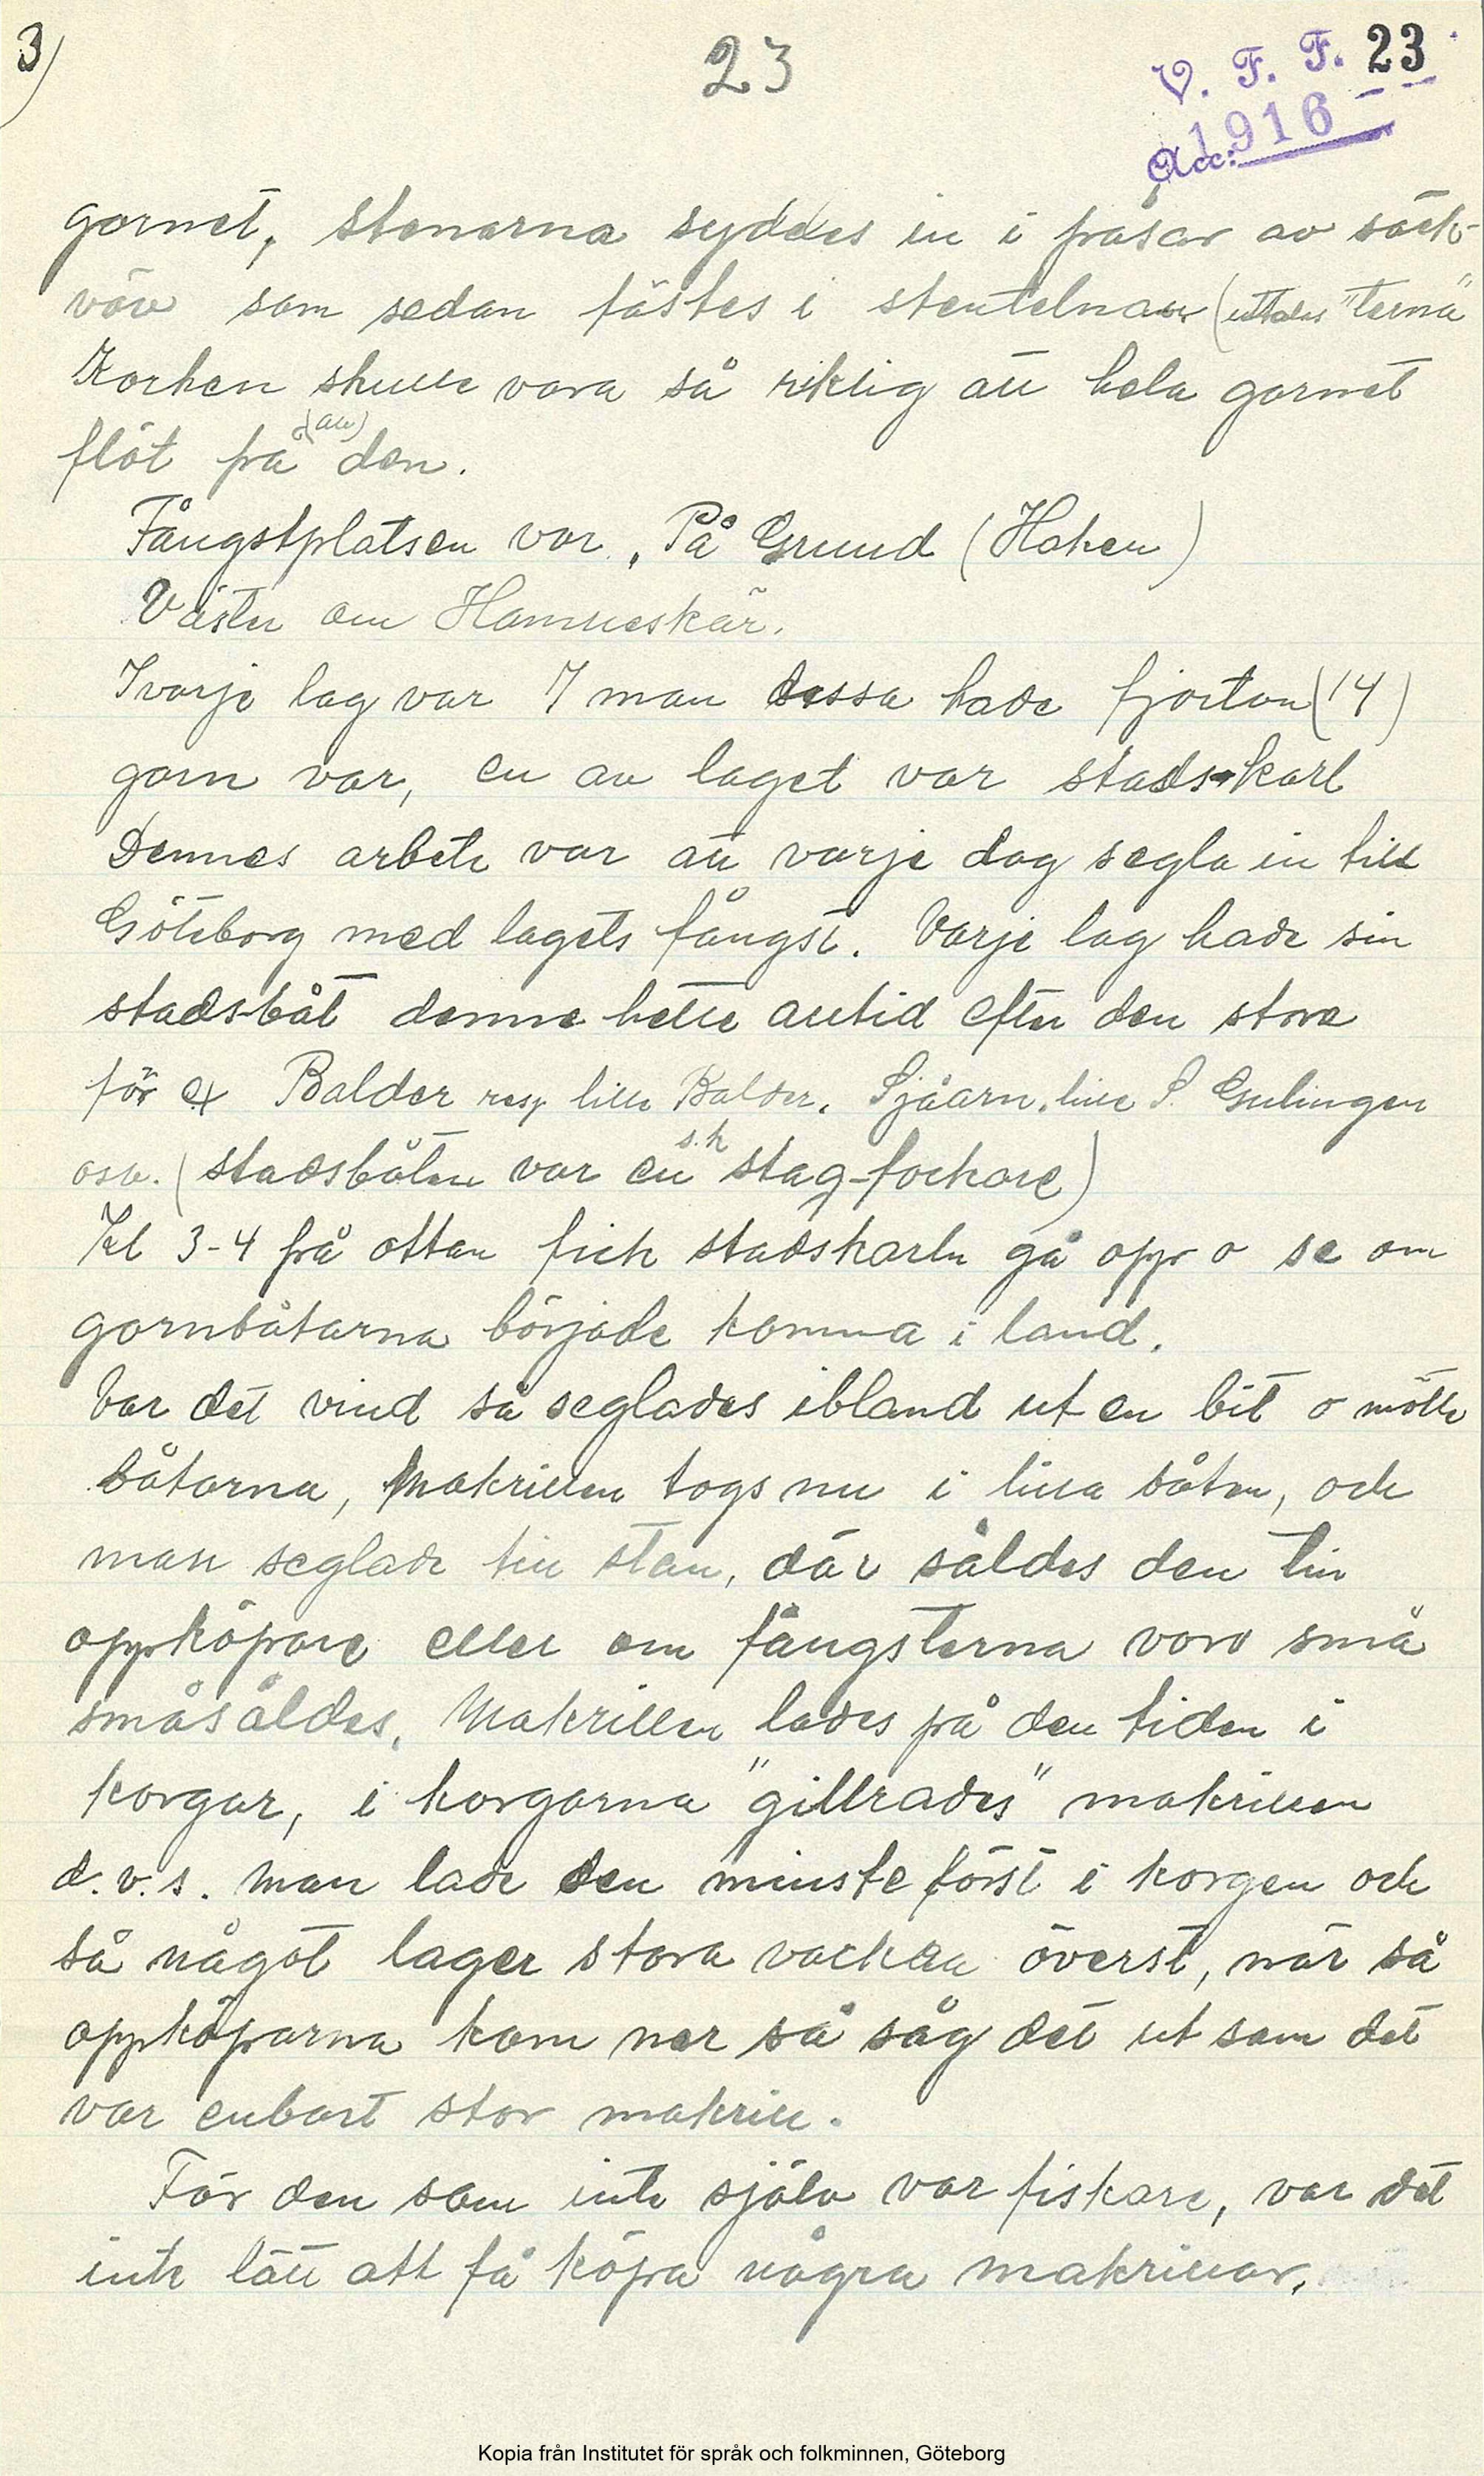 3)
23
V. F. F. 23
Acc: 1916
garnet, stenarna syddes in i påsar av säck-
väv som sedan fästes i stentelnar (uttalas "ternä"
Korken skulle vara så riklig att hela garnet
flöt på (av) den.
Fångstplatsen var, På Grund (Haken)
Väster om Hamneskär.
I varje lag var 7 man dessa hade fjorton (14)
garn var, en av laget var stads-karl
Dennes arbete var att varje dag segla in till
Göteborg med lagets fångst. Varje lag hade sin
stadsbåt denne hette alltid efter den stora
för ex Balder resp lille Balder, Sjåarn, lille S. Gulingen
osv. (stadsbåten var en s.k stag-fockare)
Kl 3-4 på ottan fick stadskarln gå opp o se om
garnbåtarna började komma i land.
Var det vind så seglades ibland ut en bit o mötte
båtarna, Makrillen togs nu i lilla båten, och
man seglade till stan, där såldes den till
oppköpare eller om fångsterna voro små
småsåldes. Makrillen lades på den tiden i
korgar, i korgarna "gillrades" makrillen
d.v.s. man lade den minste först i korgen och
så något lager stora vackra överst, när så
oppköparna kom ner så såg det ut som det
var enbart stor makrill.
För den som inte själv var fiskare, var det
inte lätt att få köpa några makrillar.
Kopia från Institutet för språk och folkminnen, Göteborg